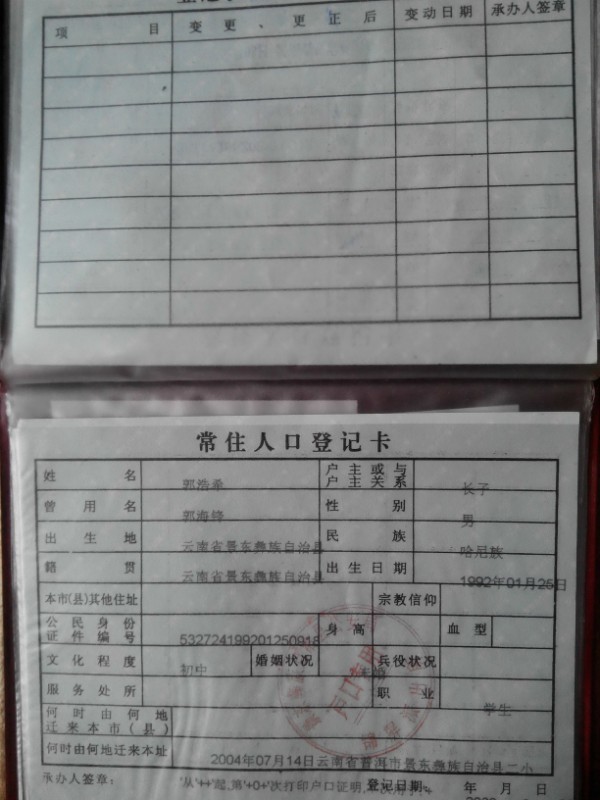 项 目 变 更 、 更 正 后 变动日期 承办人签章
常住人口登记卡
姓 名 郭浩桑 户主或与户主关系 长子
曾用名 郭海锋 性 别 男
出生地 云南省景东彝族自治县 民 族 哈尼族
籍 贯 云南省景东彝族自治县 出生日期 1992年01月25日
本市(县)其他住址 宗教信仰
公民身份证件编号 532724199201250918 身高 血型
文化程度 初中 婚姻状况 兵役状况
服务处所 职业 学生
何时由何地迁来本市(县)
何时由何地迁来本址 2004年07月14日云南省普洱市景东彝族自治县二小
承办人签章: '从'++'起,第'+0+'次打印户口证明, 登记日期: 年 月 日